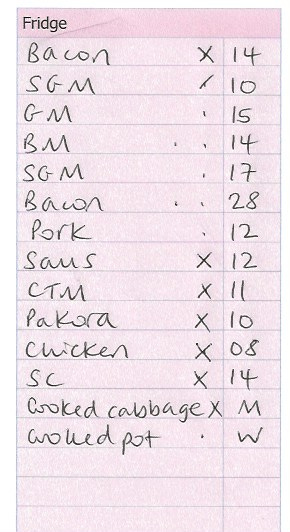 Fridge
Bacon X 14
SGM / 10
GM . 15
BM . . 14
SGM . 17
Bacon . . 28
Pork . 12
Saus X 12
CTM X 11
Pakora X 10
Chicken X 08
SC X 14
Cooked cabbage X M
Cooked pot . W